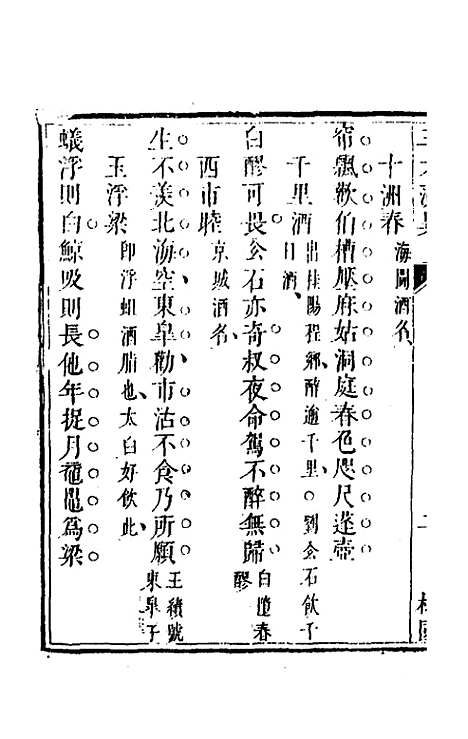 十洲春 海閫酒名
帘飄歘伯槽壓麻姑洞庭春色咫尺蓬壺
千里酒 出桂陽程鄉醉逾千里○劉公石飲千日酒
白醪可畏公石亦奇叔夜命駕不醉無歸 白墮春醪
西市䏲 京城酒名
生不羨北海空東臯勸市沽不食乃所願 王績號東臯子
玉浮梁 即浮蛆酒脂也太白好飲此
蟻浮則白鯨吸則長他年捉月黿鼉爲梁
二